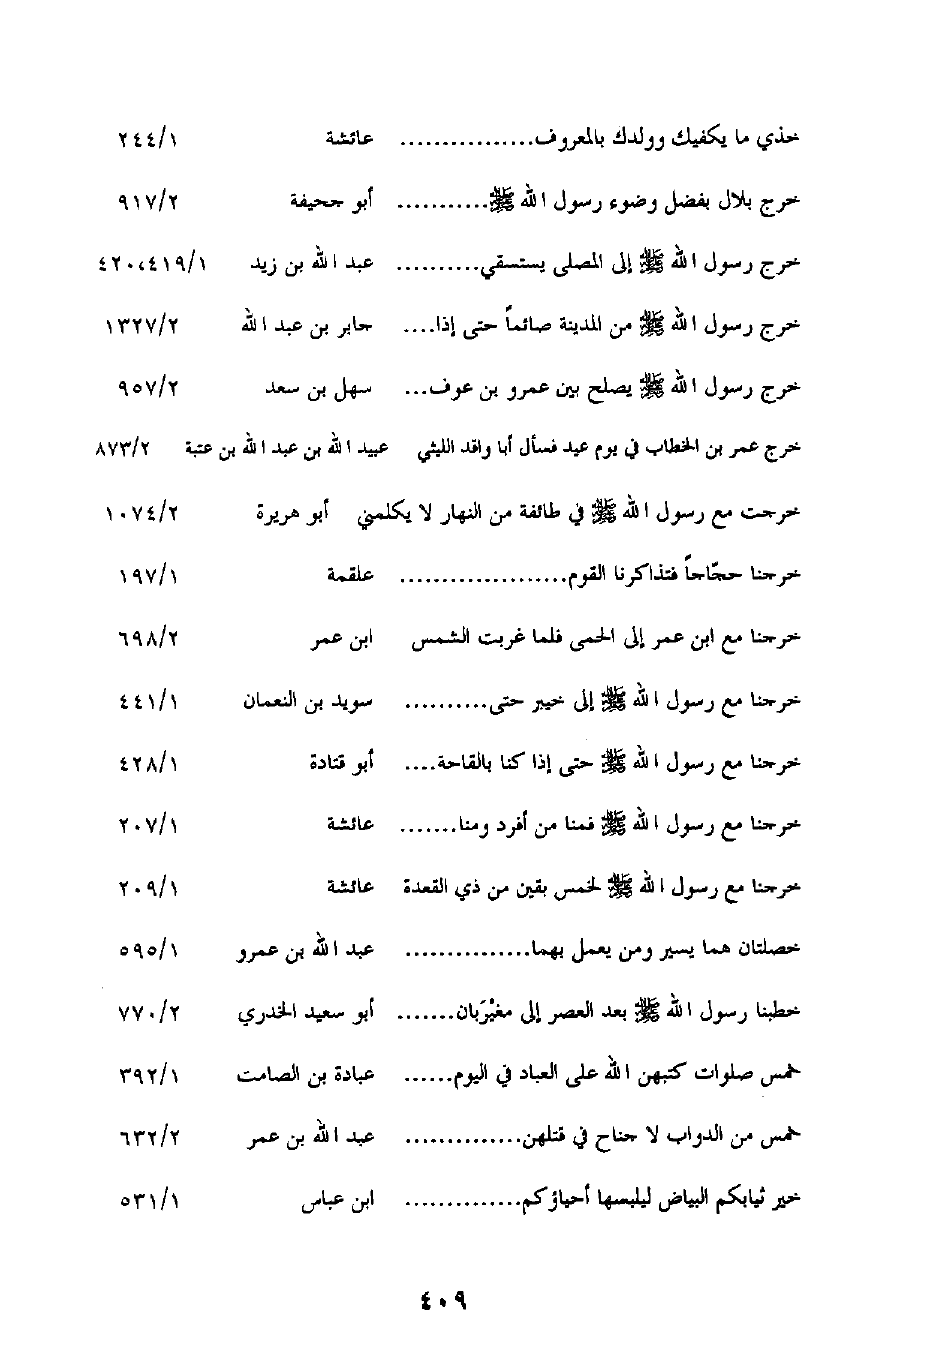 خذي ما يكفيك وولدك بالمعروف................ عائشة ٢٤٤/١
خرج بلال بفضل وضوء رسول الله ﷺ........... أبو جحيفة ٩١٧/٢
خرج رسول الله ﷺ إلى المصلى يستسقي.......... عبد الله بن زيد ٤٢٠،٤١٩/١
خرج رسول الله ﷺ من المدينة صائماً حتى إذا.... جابر بن عبد الله ١٣٢٧/٢
خرج رسول الله ﷺ يصلح بين عمرو بن عوف... سهل بن سعد ٩٥٧/٢
خرج عمر بن الخطاب في يوم عيد فسأل أبا واقد الليثي عبيد الله بن عبد الله بن عتبة ٨٧٣/٢
خرجت مع رسول الله ﷺ في طائفة من النهار لا يكلمني أبو هريرة ١٠٧٤/٢
خرجنا حجّاجاً فتذاكرنا القوم.................... علقمة ١٩٧/١
خرجنا مع ابن عمر إلى الحمى فلما غربت الشمس ابن عمر ٦٩٨/٢
خرجنا مع رسول الله ﷺ إلى خيبر حتى.......... سويد بن النعمان ٤٤١/١
خرجنا مع رسول الله ﷺ حتى إذا كنا بالقاحة.... أبو قتادة ٤٢٨/١
خرجنا مع رسول الله ﷺ فمنا من أفرد ومنا....... عائشة ٢٠٧/١
خرجنا مع رسول الله ﷺ لخمس بقين من ذي القعدة عائشة ٢٠٩/١
خصلتان هما يسير ومن يعمل بهما............... عبد الله بن عمرو ٥٩٥/١
خطبنا رسول الله ﷺ بعد العصر إلى مغيْرَبان....... أبو سعيد الخدري ٧٧٠/٢
خمس صلوات كتبهن الله على العباد في اليوم...... عبادة بن الصامت ٣٩٢/١
خمس من الدواب لا جناح في قتلهن.............. عبد الله بن عمر ٦٣٢/٢
خير ثيابكم البياض ليلبسها أحياؤكم.............. ابن عباس ٥٣١/١
٤٠٩